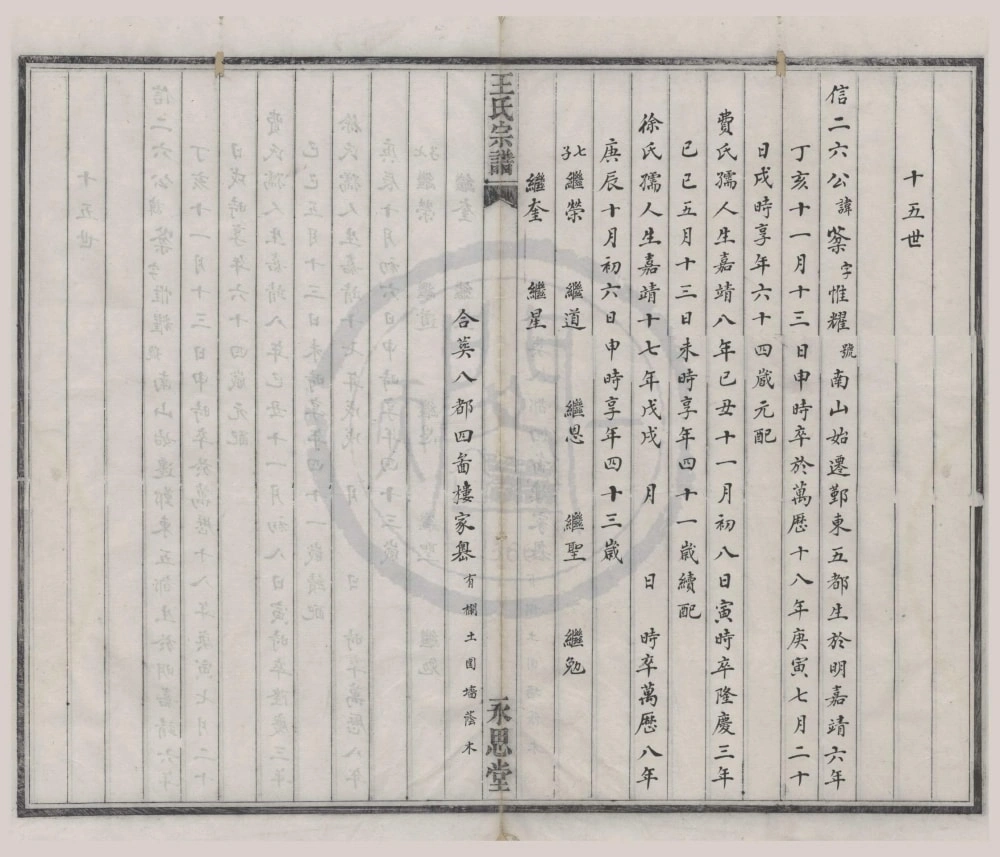 十五世
信二六公諱棻字惟耀號南山始遷鄞東五都生於明嘉靖六年
丁亥十一月十三日申時卒於萬歷十八年庚寅七月二十
日戌時享年六十四歲元配
費氏孺人生嘉靖八年己丑十一月初八日寅時卒隆慶三年
己巳五月十三日未時享年四十一歲續配
徐氏孺人生嘉靖十七年戊戌 月 日 時卒萬歷八年
庚辰十月初六日申時享年四十三歲
七子繼榮 繼道 繼恩 繼聖 繼勉
繼奎 繼星
合葬八都四啚樓家㠗有攔土圍墻蔭木
王氏宗譜
永思堂